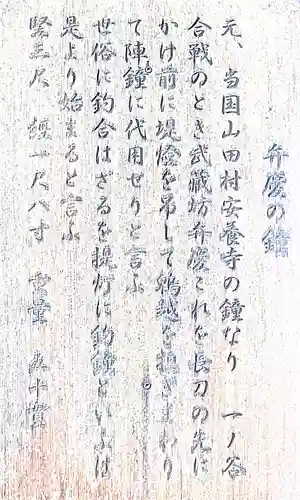 弁慶の鐘
元、当国山田村安養寺の鐘なり 一ノ谷
合戦のとき武蔵坊弁慶これを長刀の先に
かけ前に堤燈を吊して鵯越を担ぎまわり
て陣鐘に代用せりと言ふ
世俗に釣合はざるを提灯に釣鐘といふは
是より始まると言ふ
竪三尺 経一尺八寸 重量